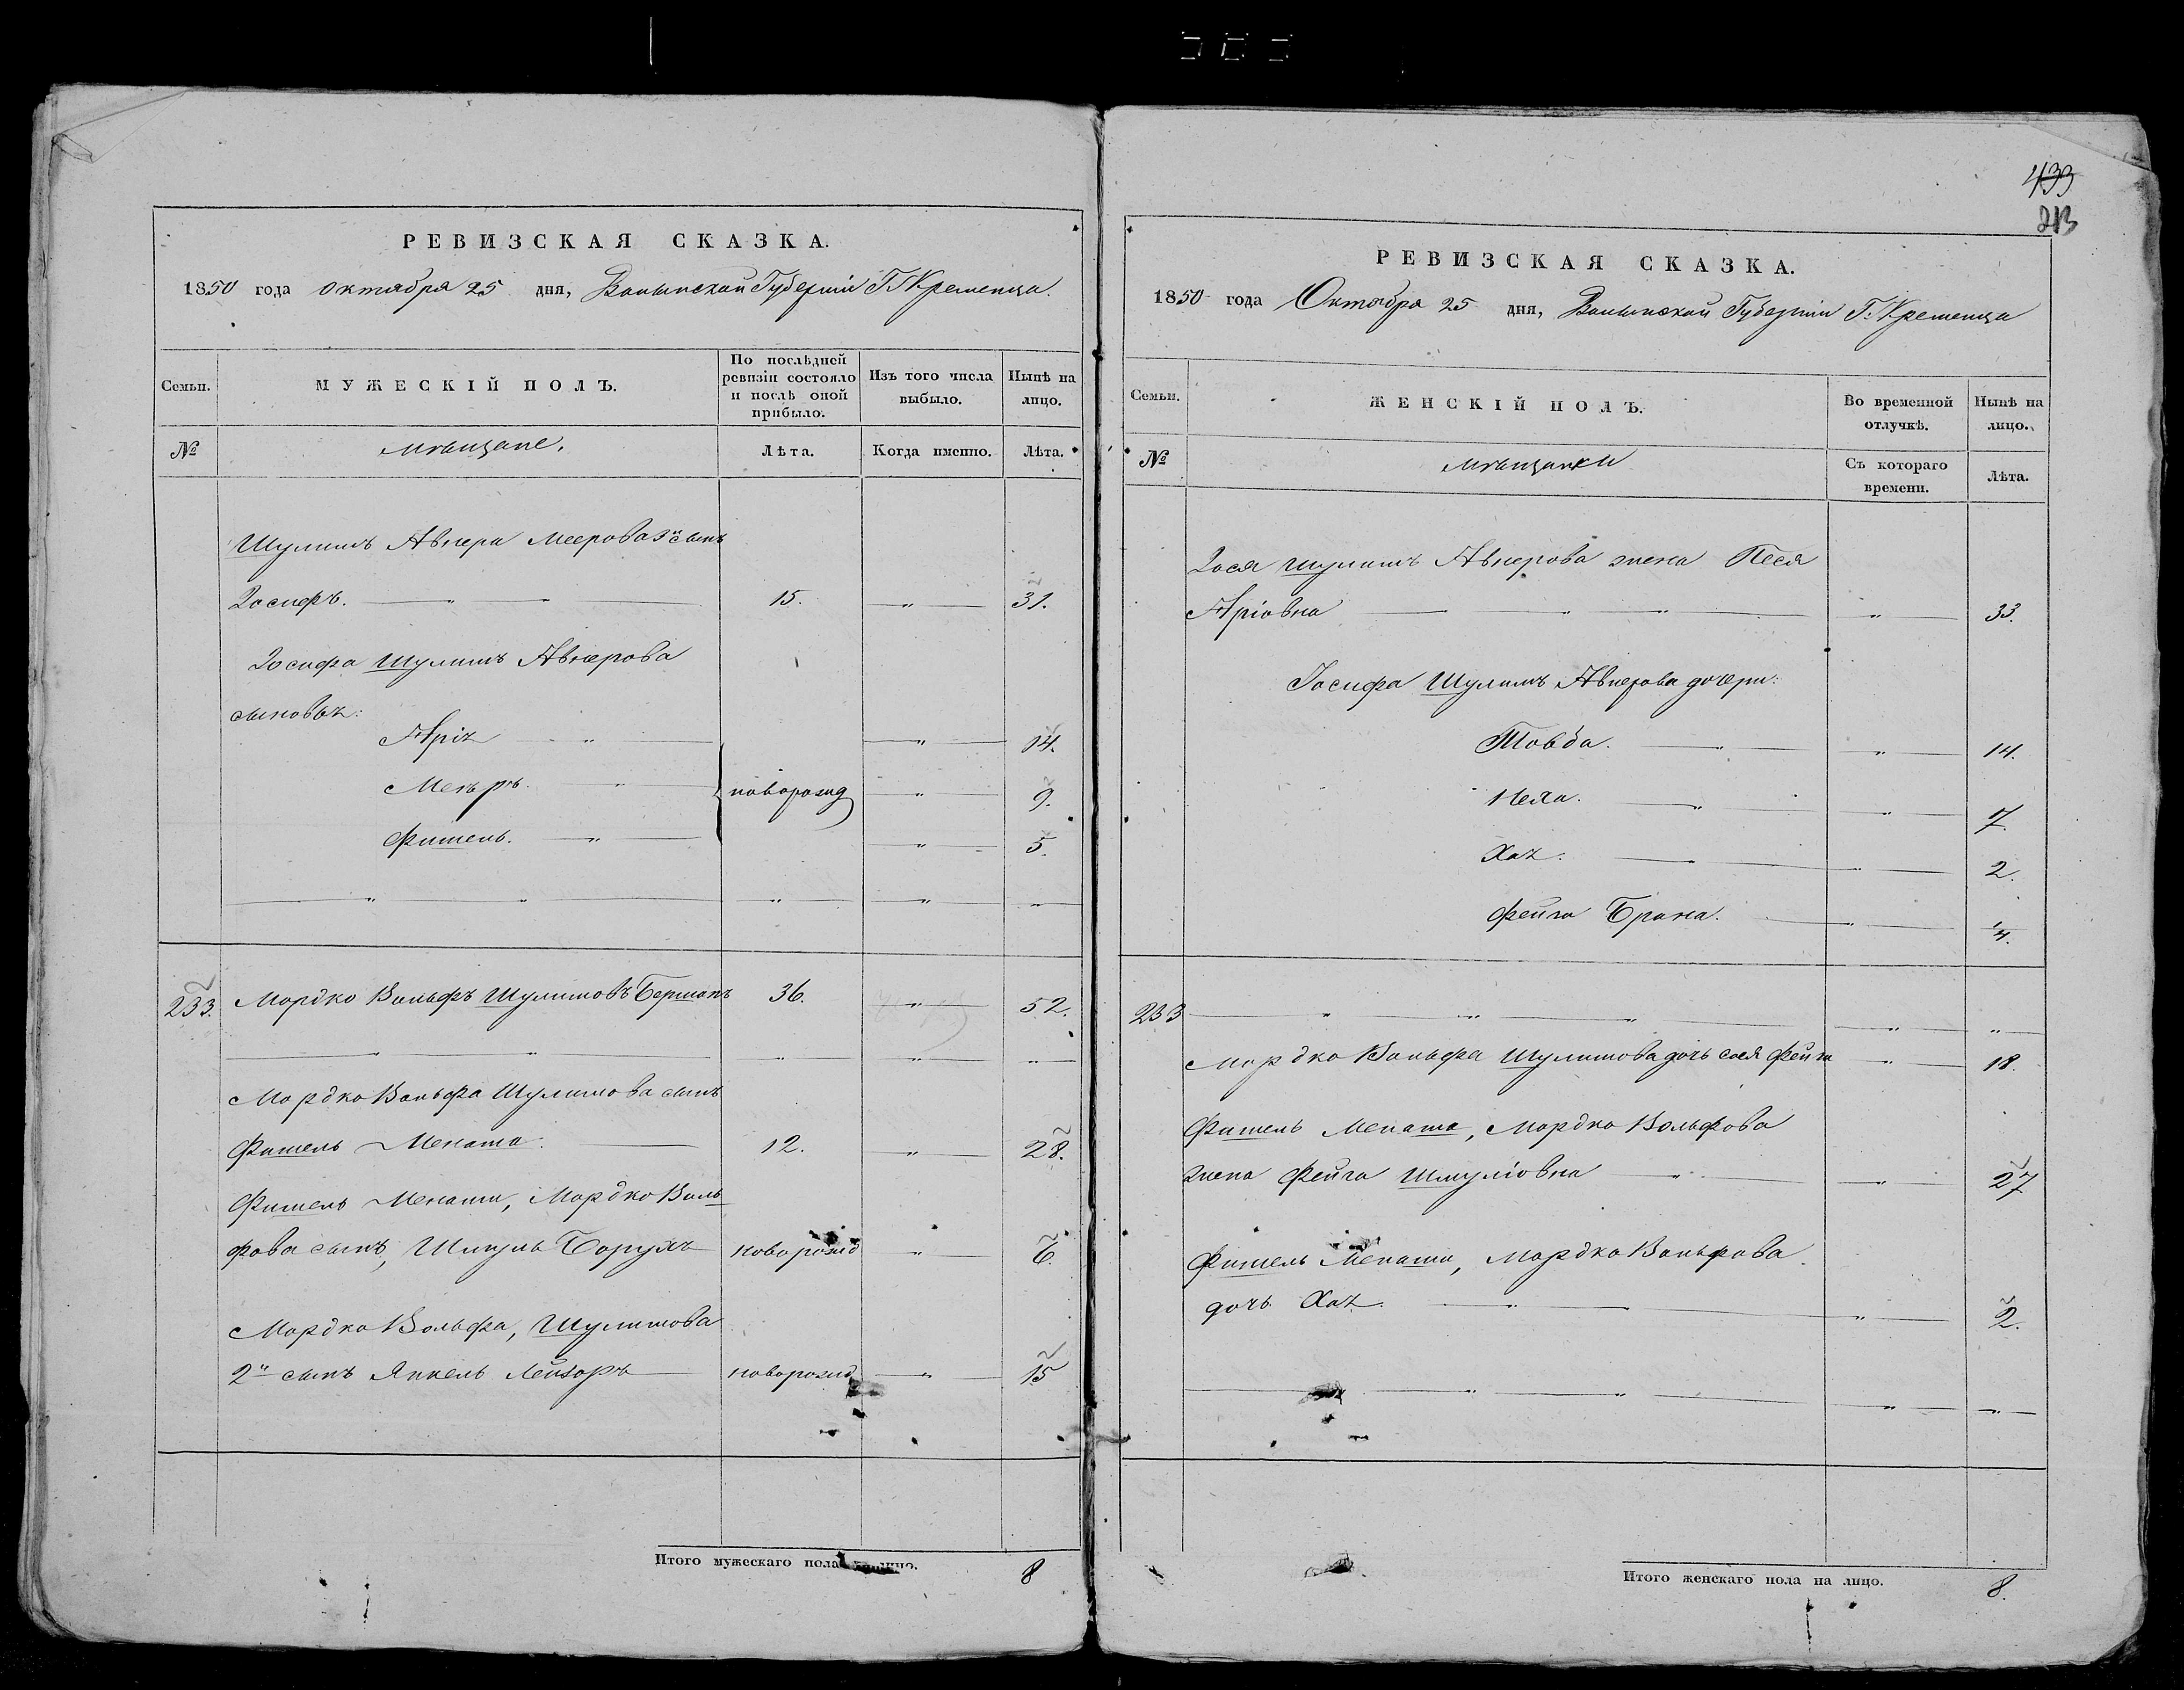 433
213
РЕВИЗСКАЯ СКАЗКА.
1850 года октября 25 дня, Волынской Губерніи Г. Кременца.
Семьи.
МУЖЕСКІЙ ПОЛЪ.
По послѣдней ревизіи состояло и послѣ оной прибыло.
Изъ того числа выбыло.
Нынѣ на лицо.
№
мѣщане.
Лѣта.
Когда именно.
Лѣта.
Шулимъ Авнера Меерова 3й сынъ
Іосифъ. — " — " — 15. — " — 31.
Іосифа Шулимъ Авнерова
сыновья:
Аріх — " — " — 14.
Меѣръ. — " — новорожд — " — 9.
Фишель. — " — " — 5.
— " — " — " — " — " —
233. Мордко Вольфъ Шулимовъ Берманъ 36. — " — 52.
— " — " — " — " — " —
Мордко Вольфа Шулимова сынъ
Фишель Менаша. — 12. — " — 28.
Фишель Менаши, Мордко Воль
фова сынъ, Шмуль Борухъ — новорожд — " — 6.
Мордко Вольфа, Шулимова
2й сынъ Янкель Лейзоръ — новорожд — " — 15
Итого мужескаго пола на лицо. 8
РЕВИЗСКАЯ СКАЗКА.
1850 года Октября 25 дня, Волынской Губерніи Г. Кременца
Семьи.
ЖЕНСКІЙ ПОЛЪ.
Во временной отлучкѣ.
Нынѣ на лицо.
№
мѣщанки
Съ котораго времени.
Лѣта.
Іося Шулимъ Авнерова жена Песя
Аріовна — " — " — " — 33.
Іосифа Шулимъ Авнерова дочери:
Товба. — " — " — 14.
Неха. — " — " — 7.
Хая. — " — " — 2.
Фейга Брана. — " — 4.
233 — " — " — " — " — "
Мордко Вольфа Шулимова дочь Сося Фейга — " — 18.
Фишель Менаша, Мордко Вольфова
жена Фейга Шмуліовна — " — " — 27
Фишель Менаши, Мордко Вольфова
дочь Хая. — " — " — 2.
— " — " — " — " —
Итого женскаго пола на лицо. 8.